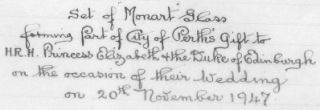 Set of Monart Glass
forming Part of City of Perth's Gift to
H.R.H. Princess Elizabeth & the Duke of Edinburgh
on the occasion of their Wedding
on 20th November 1947